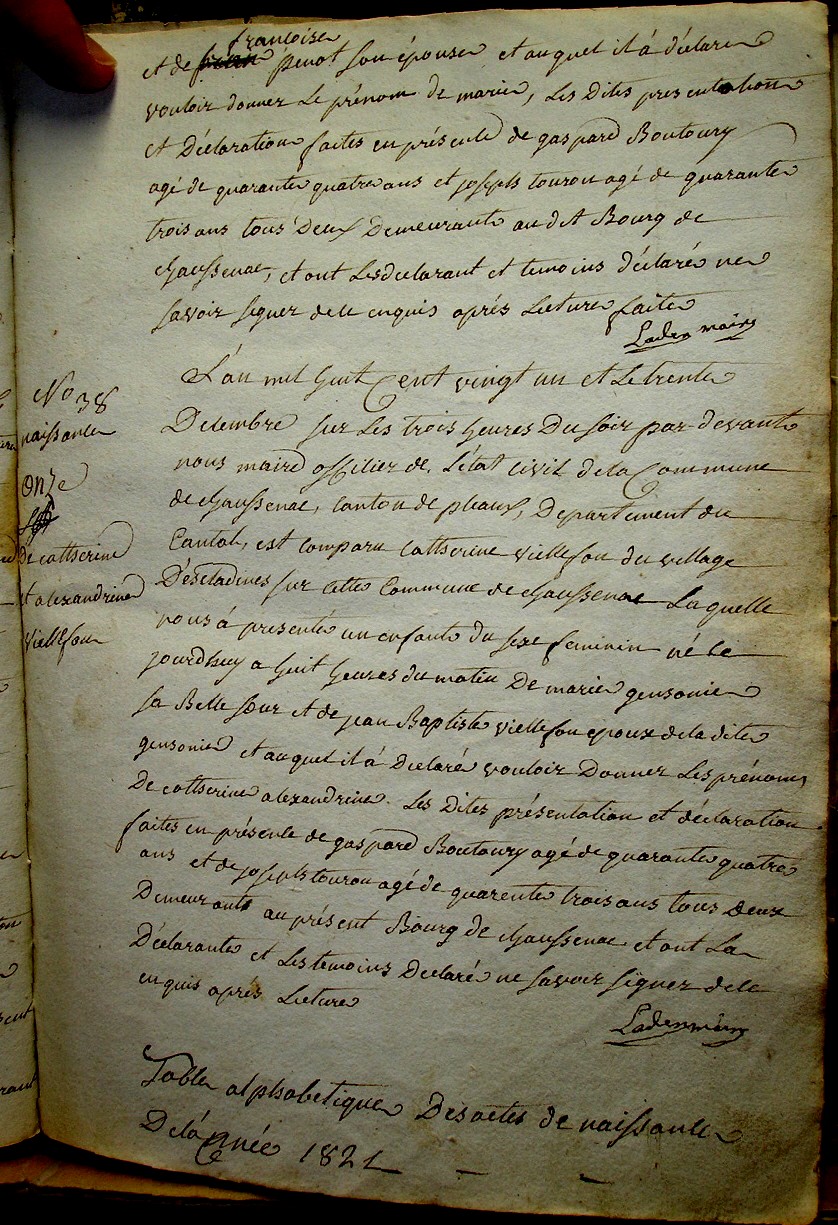 françoise
et de penot son épouse et auquel il á déclaré
vouloir donner Le prénom de marie, Les Dites presentation
et Déclaration faites en présence de gaspard Boutoury
agé de quarante quatre ans et joseph touron agé de quarante
trois ans tous Deux Demeurants au dit Bourg de
chaussenac, et ont Les declarant et temoins déclaré ne
savoir signer de ce enquis aprés Lecture faite
Laden maire
No 38
naissance
onze
de catherine
et alexandrine
viellefon
L'an mil huit Cent vingt un et Le trente
Decembre sur Les trois heures Du soir par-devant
nous maire officier de L'état civil de la Commune
de chaussenac, canton de pleaux, Departement du
Cantal, est comparu catherine viellefon du village
D'escladines sur cette Commune de chaussenac Laquelle
nous á presenté un enfant du sexe feminin né ce
jourdhuy a huit heures du matin De marie gensonie
sa Belle sœur et de jean Baptiste viellefon epoux de la dite
gensonie et auquel il á Declaré vouloir Donner Les prénoms
De catherine alexandrine. Les Dites présentation et déclaration
faites en présence de gaspard Boutoury agé de quarante quatre
ans et de joseph touron agé de quarente trois ans tous Deux
Demeurants au présent Bourg de chaussenac et ont La
Déclarante et Les temoins Declaré ne savoir signer de ce
enquis aprés Lecture
Laden maire
Table alphabetique Des actes de naissance
De lá année 1821